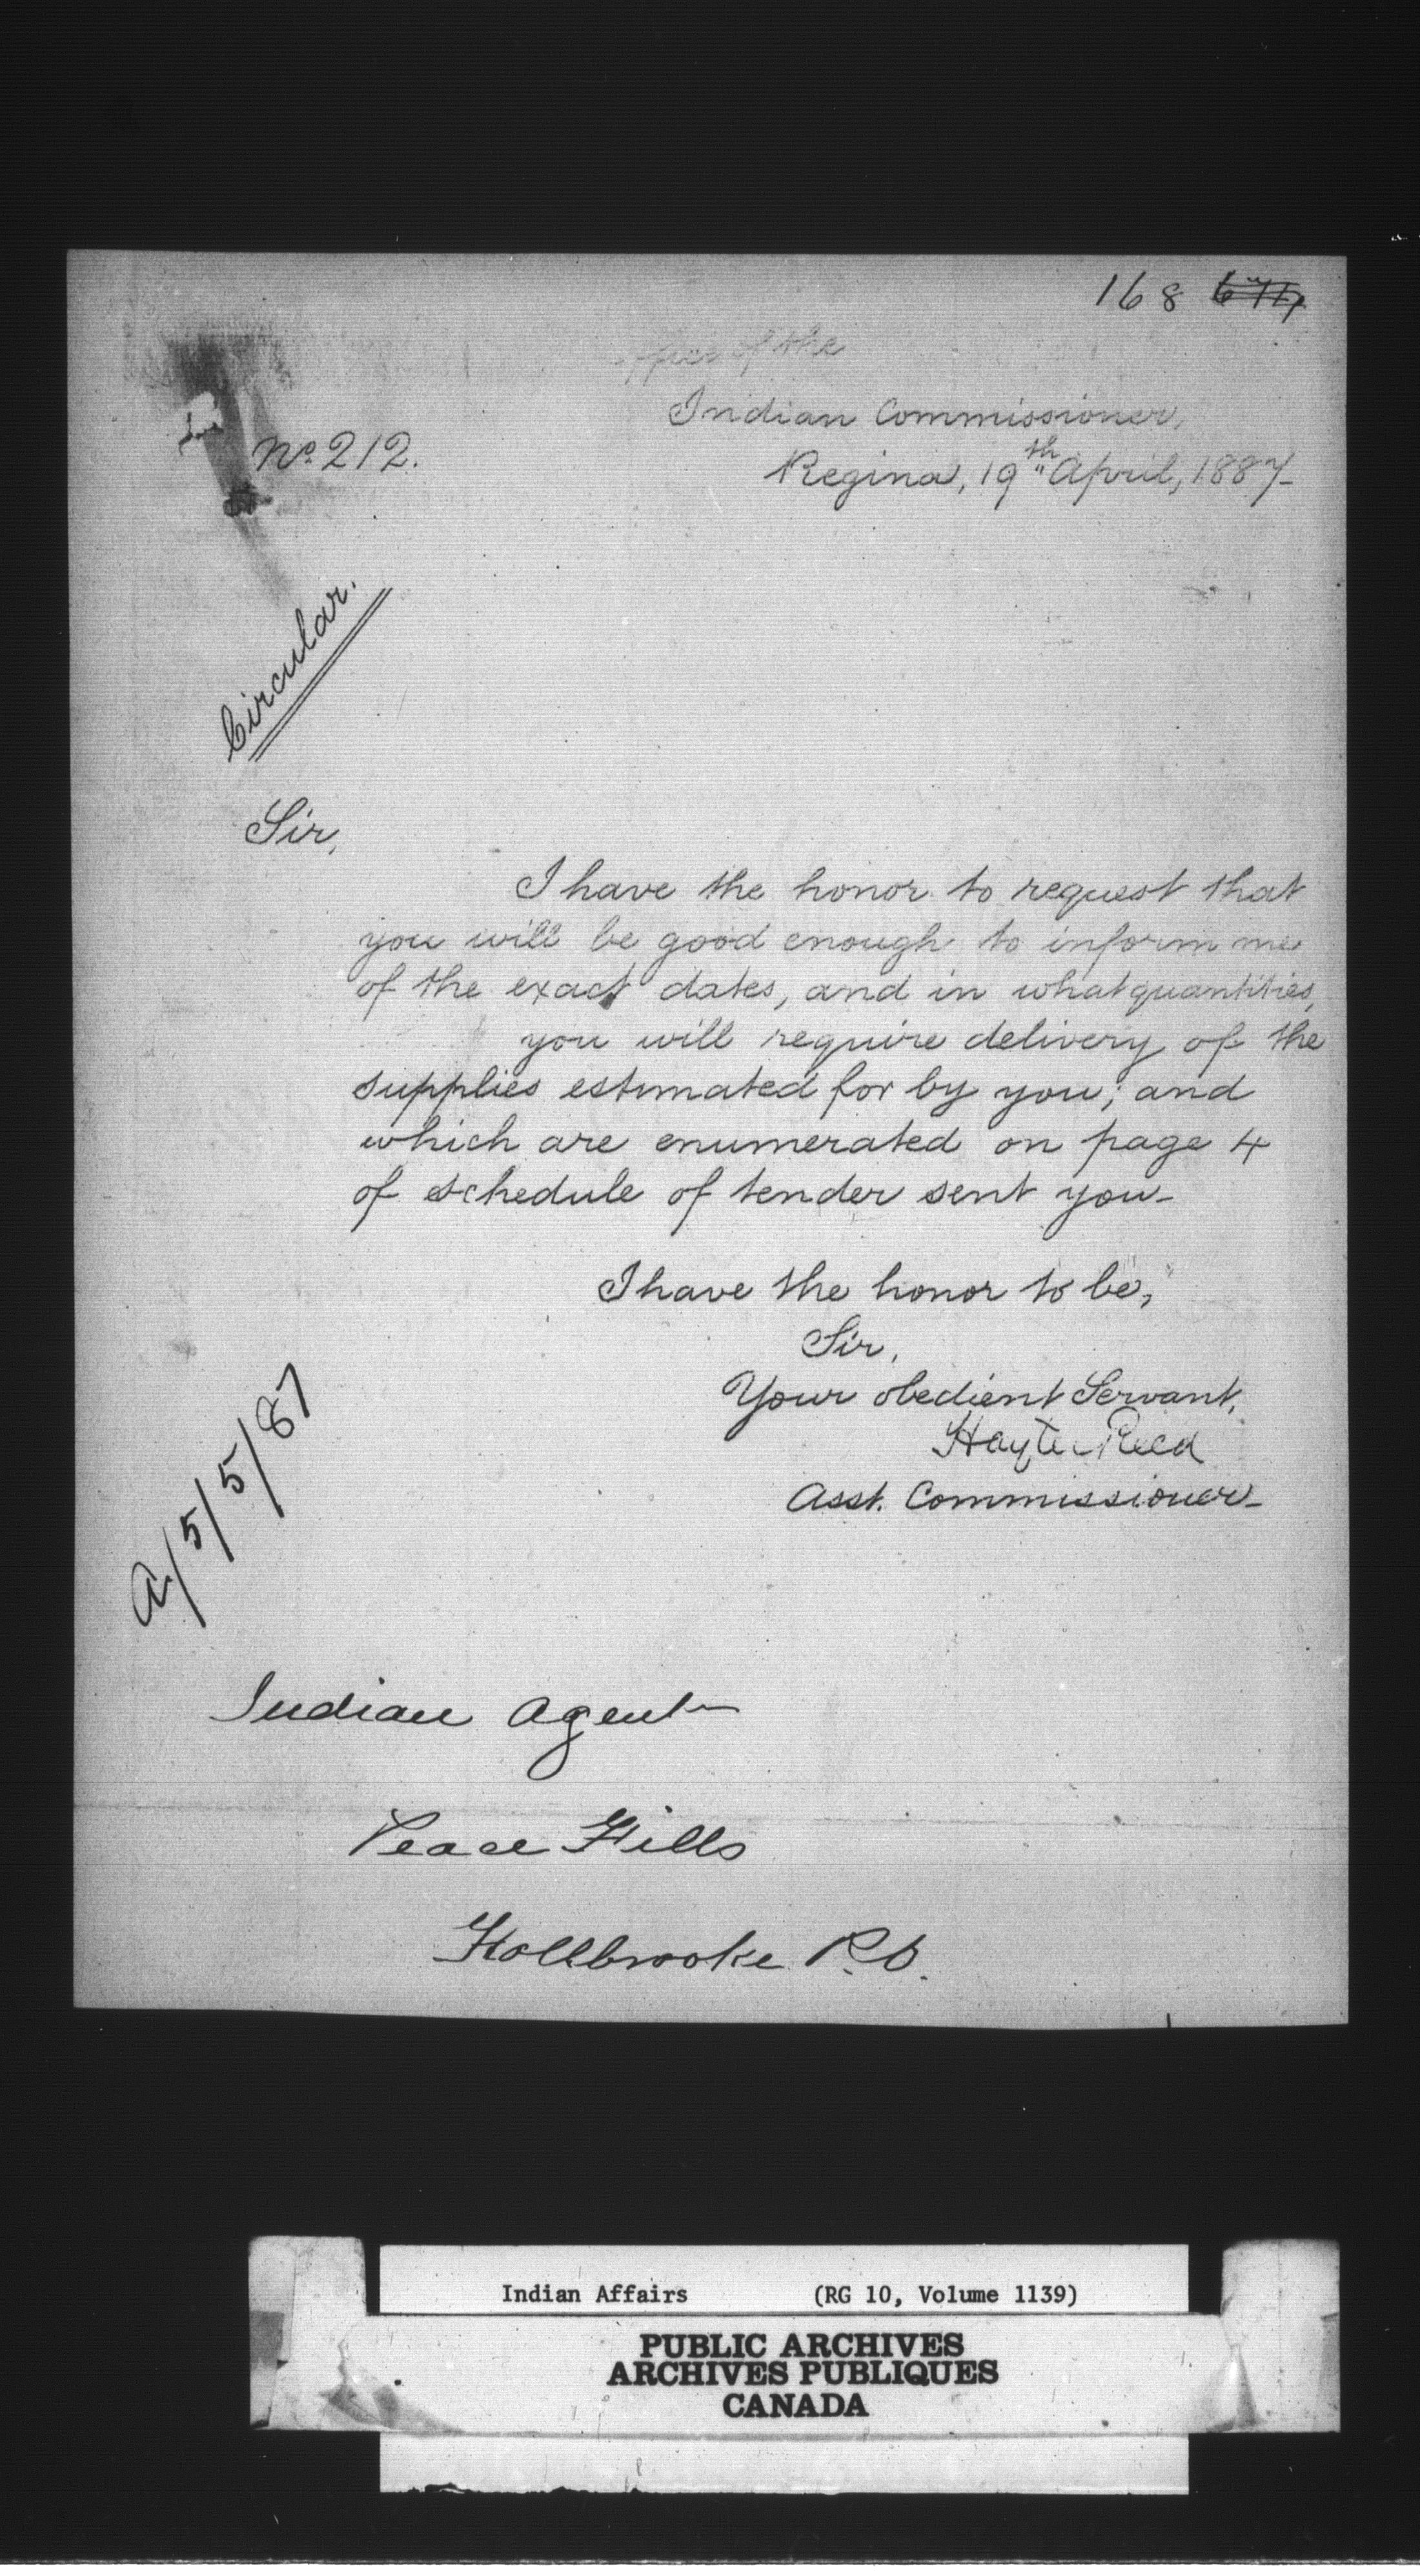 168
Office of the
Indian Commissioner,
Regina, 19th April, 1887-
No. 212.
Circular.
Sir,
I have the honor to request that
you will be good enough to inform me
of the exact dates, and in what quantities,
you will require delivery of the
supplies estimated for by you; and
which are enumerated on page 4
of schedule of tender sent you-
I have the honor to be,
Sir,
Your obedient Servant,
Hayter Reed
Asst. Commissioner-
A/5/5/87
Indian Agent
Peace Hills
Hollbrooke P.O.
Indian Affairs (RG 10, Volume 1139)
PUBLIC ARCHIVES
ARCHIVES PUBLIQUES
CANADA